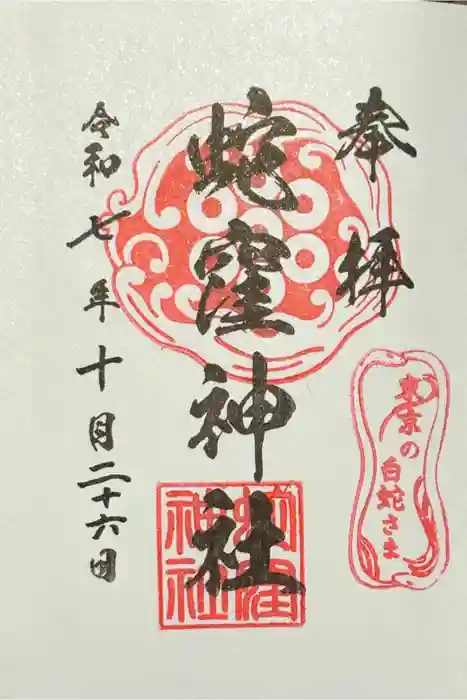 奉拝
蛇窪神社
令和七年十月二十六日
東京の白蛇さま
蛇窪神社